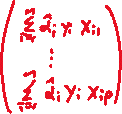 ∑_{i=1}^{n} α̂_i y_i x_{i1}
⋮
∑_{i=1}^{n} α̂_i y_i x_{ip}